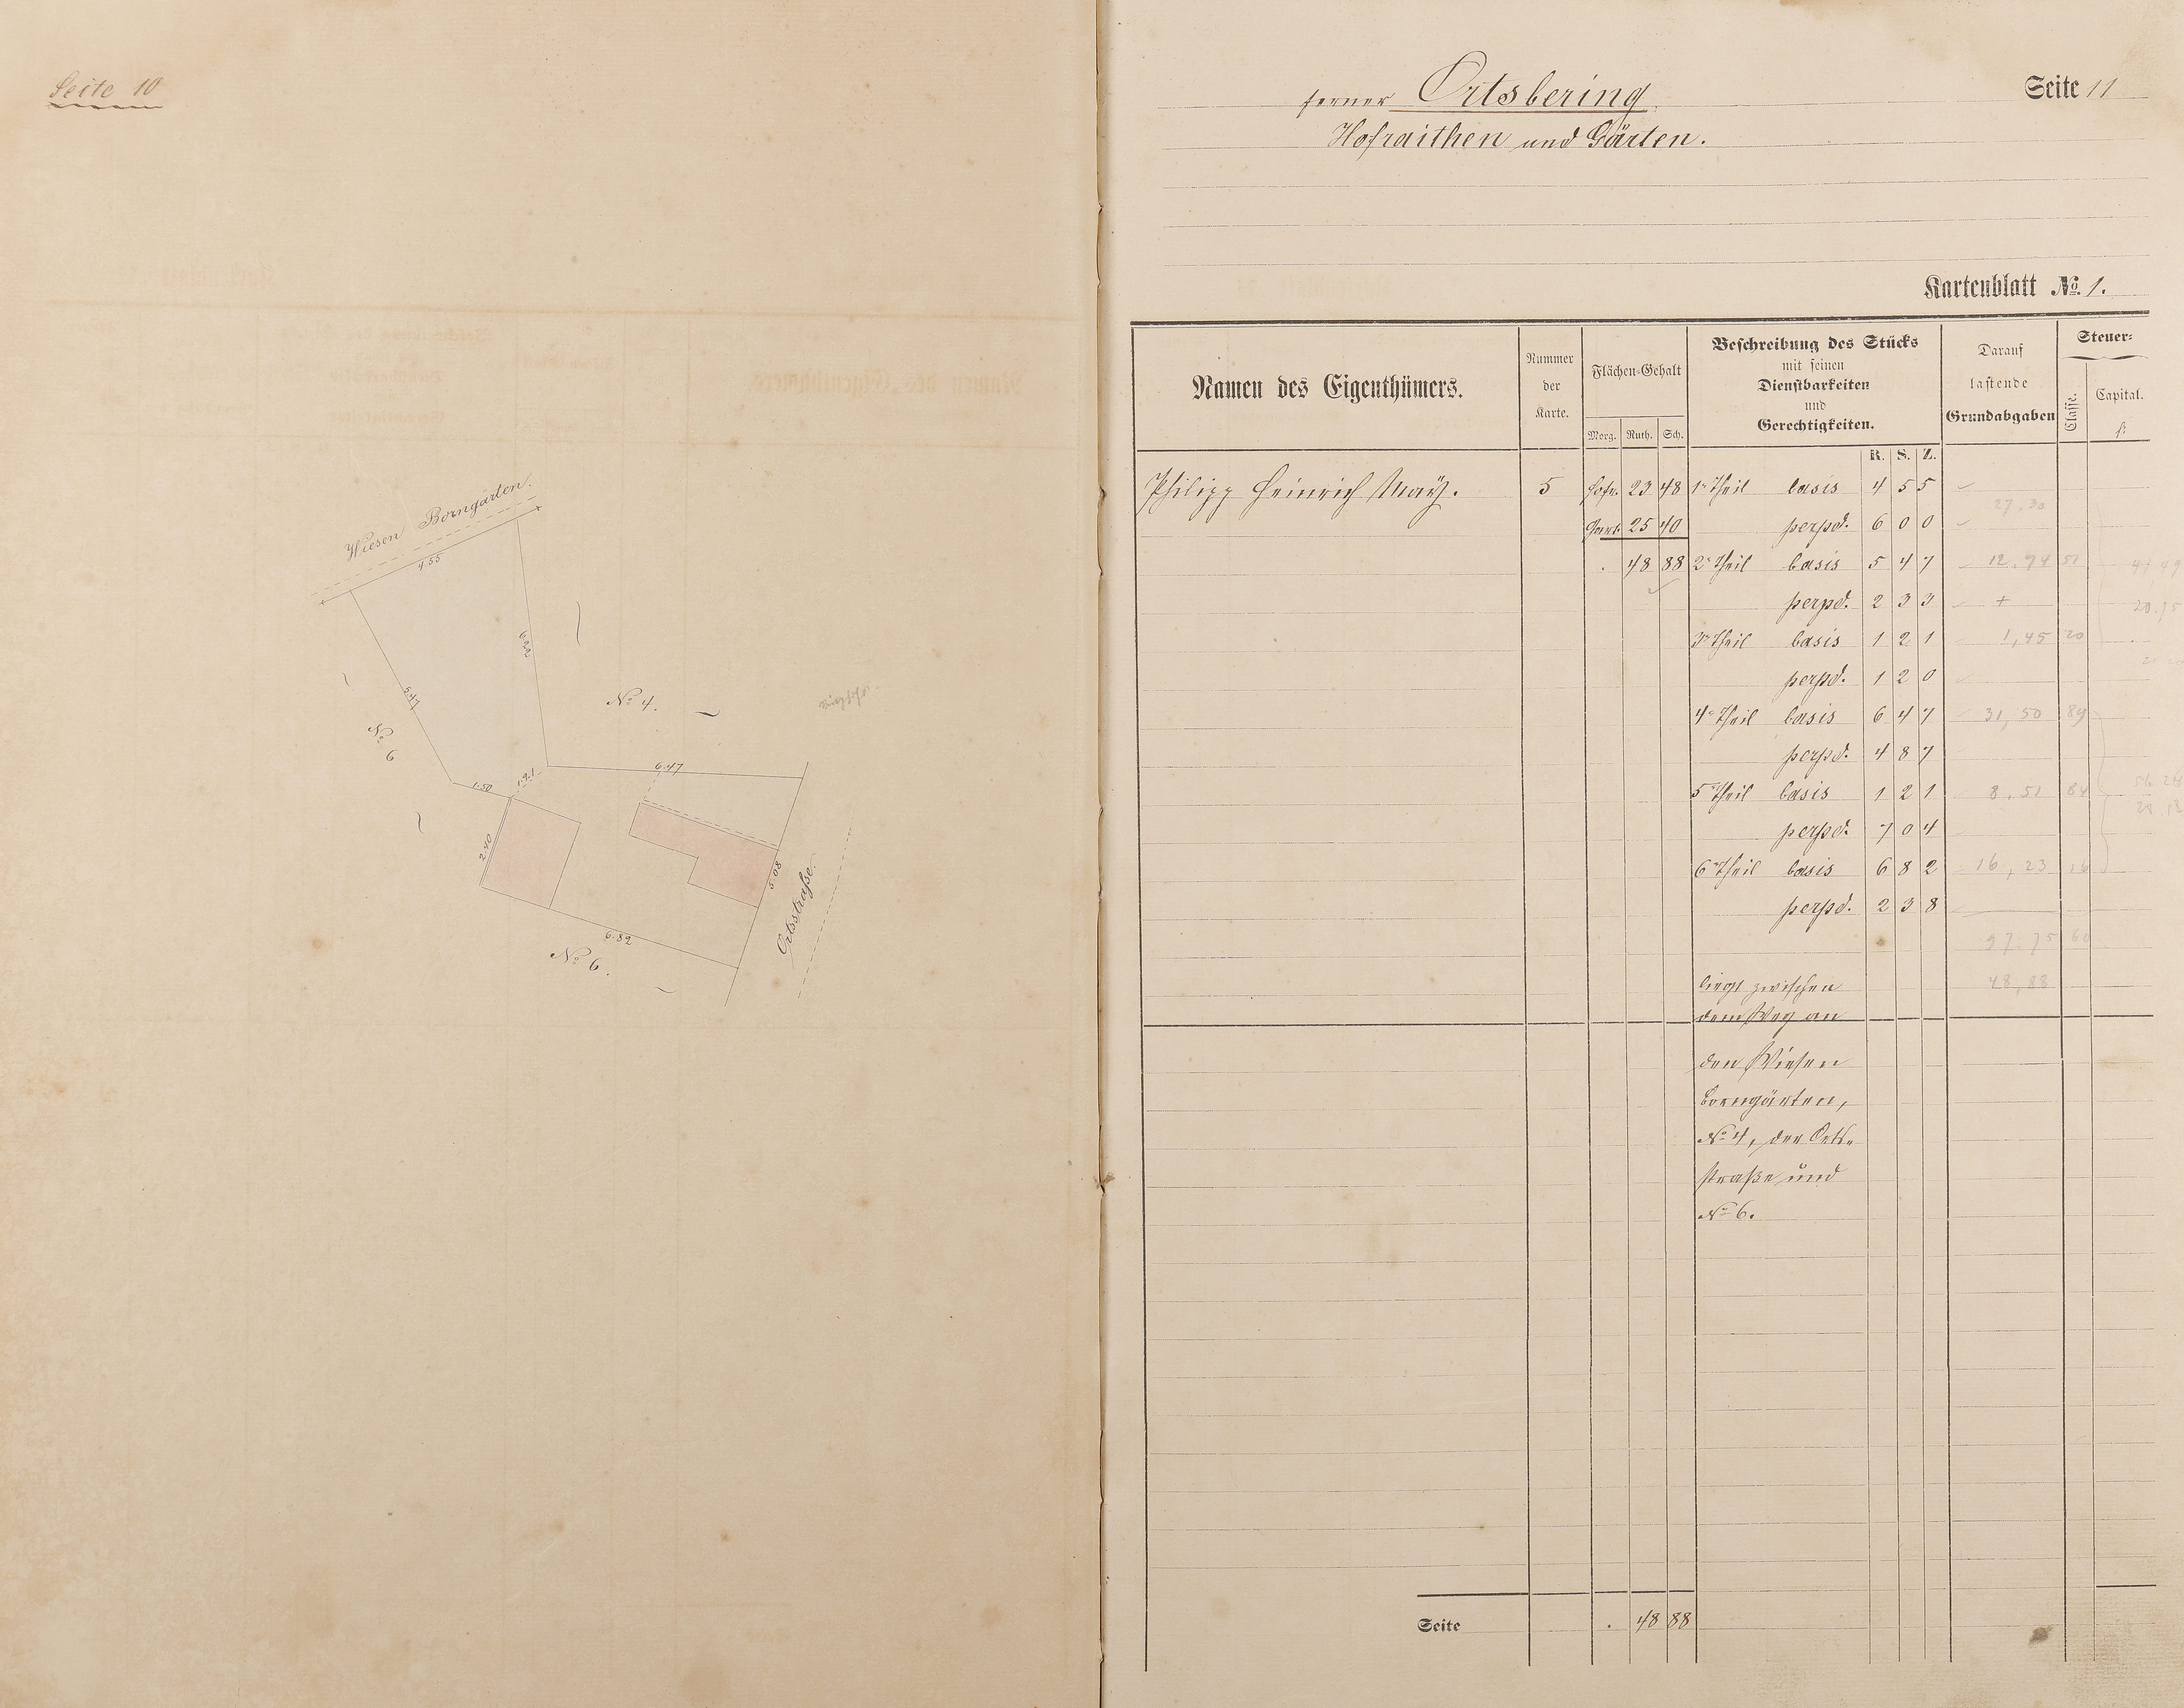 Seite 10
Wiesen Borngärten.
4.55
5.47
No 6
No 4.
1.50
1.21
6.47
2.40
5.08
Ortsstraße.
6.82
No 6.
ferner Ortsbering
Seite 11
Hofraithen und Gärten.
Kartenblatt No. 1.
Namen des Eigenthümers.
Nummer
der
Karte.
Flächen-Gehalt
Morg. Ruth. Sch.
Beschreibung des Stücks
mit seinen
Dienstbarkeiten
und
Gerechtigkeiten.
Darauf
lastende
Grundabgaben
Steuer-
Classe.
Capital.
fl.
R. S. Z.
Philipp Heinrich Maÿ. 5 Hofr. 23 48 1r Theil basis 4 5 5
Gart. 25 40 perpd. 6 0 0
27.30
. 48 88 2r Theil basis 5 4 7 12.74 51
perpd. 2 3 3 +
3r Theil basis 1 2 1 1,45 20
perpd. 1 2 0
4r Theil basis 6 4 7 31,50 89
perpd. 4 8 7
5r Theil basis 1 2 1 8,51 84
perpd. 7 0 4
6r Theil basis 6 8 2 16,23 16
perpd. 2 3 8
97.75 60
liegt zwischen 48,88
dem Weg an
den Wiesen
Borngärten,
No 4, der Orts-
straße und
No 6.
Seite . 48 88